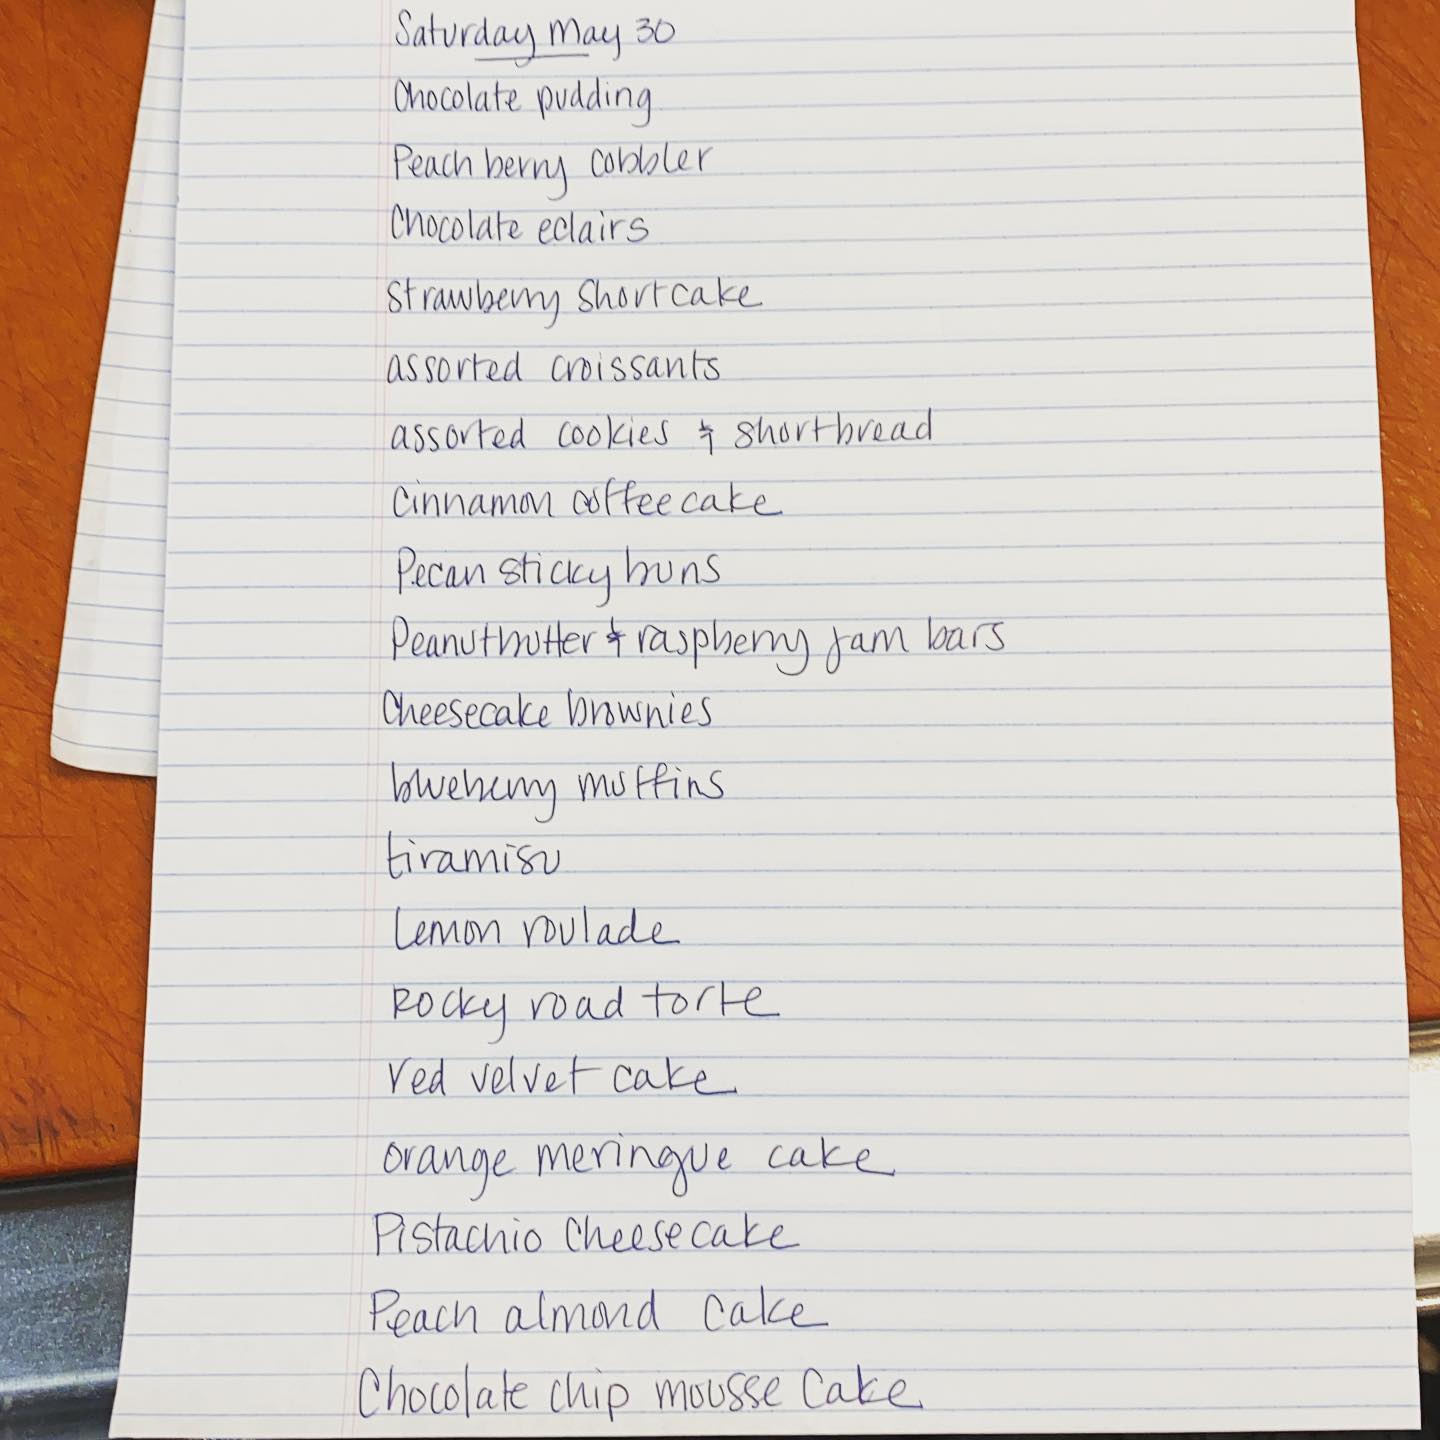 Saturday May 30
Chocolate pudding
Peach berry cobbler
Chocolate eclairs
strawberry shortcake
assorted croissants
assorted cookies & shortbread
Cinnamon coffee cake
Pecan sticky buns
Peanutbutter & raspberry jam bars
Cheesecake brownies
blueberry muffins
tiramisu
Lemon roulade
Rocky road torte
red velvet cake
orange meringue cake
Pistachio Cheesecake
Peach almond cake
Chocolate chip mousse Cake